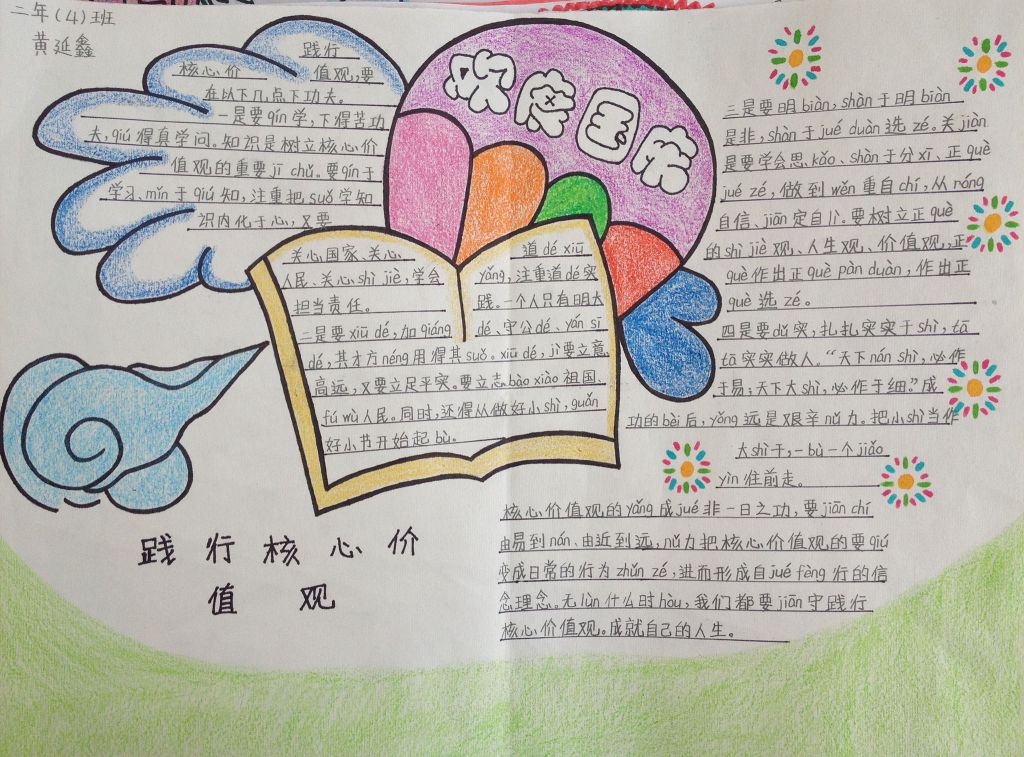 二年(4)班
黄延鑫
欢度国庆
践行
核心价 值观,要
在以下几点下功夫。
一是要qín学,下得苦功
夫,qiú得真学问。知识是树立核心价
值观的重要jī chǔ。要qín于
学习、mǐn于qiú知,注重把suǒ学知
识内化于心,又要
关心国家、关心
人民、关心shì jiè,学会
担当责任。
二是要xiū dé,加qiáng
道dé xiū
yǎng,注重道dé实
践。一个人只有明大
dé、守公dé、yán sī
dé,其才方néng用得其suǒ。xiū dé,jì要立意
高远,又要立足平实。要立志bào xiào祖国、
fú wù人民。同时,还得从做好小shì,guǎn
好小节开始起bù。
三是要明biàn,shàn于明biàn
是非,shàn于jué duàn选zé。关jiàn
是要学会思kǎo、shàn于分xī、正què
jué zé,做到wěn重自chí,从róng
自信、jiān定自
的shì jiè观、人生观、价值观,正
què作出正què pàn duàn,作出正
què选zé。
四是要dǔ实,扎扎实实于shì,tā
tā实实做人。“天下nán shì,必作
于易;天下大shì,必作于细。”成
功的bèi后,yǒng远是艰辛nǔ力。把小shì当作
大shì干,一bù一个jiǎo
yìn往前走。
核心价值观的yǎng成jué非一日之功,要jiān chí
由易到nán、由近到远,nǔ力把核心价值观的要qiú
变成日常的行为zhǔn zé,进而形成自jué fèng行的信
念理念。无lùn什么时hòu,我们都要jiān守践行
核心价值观。成就自己的人生。
践行核心价
值观